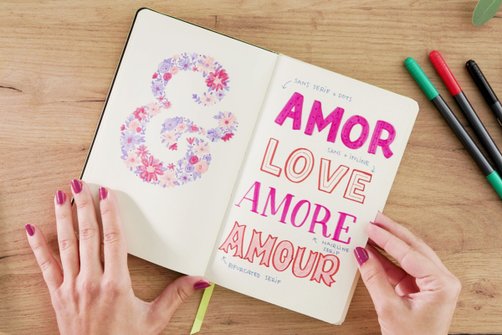 &
SANS SERIF + DOTS
AMOR
SANS + INLINE
LOVE
AMORE
HAIRLINE
SERIF
AMOUR
BIFURCATED SERIF